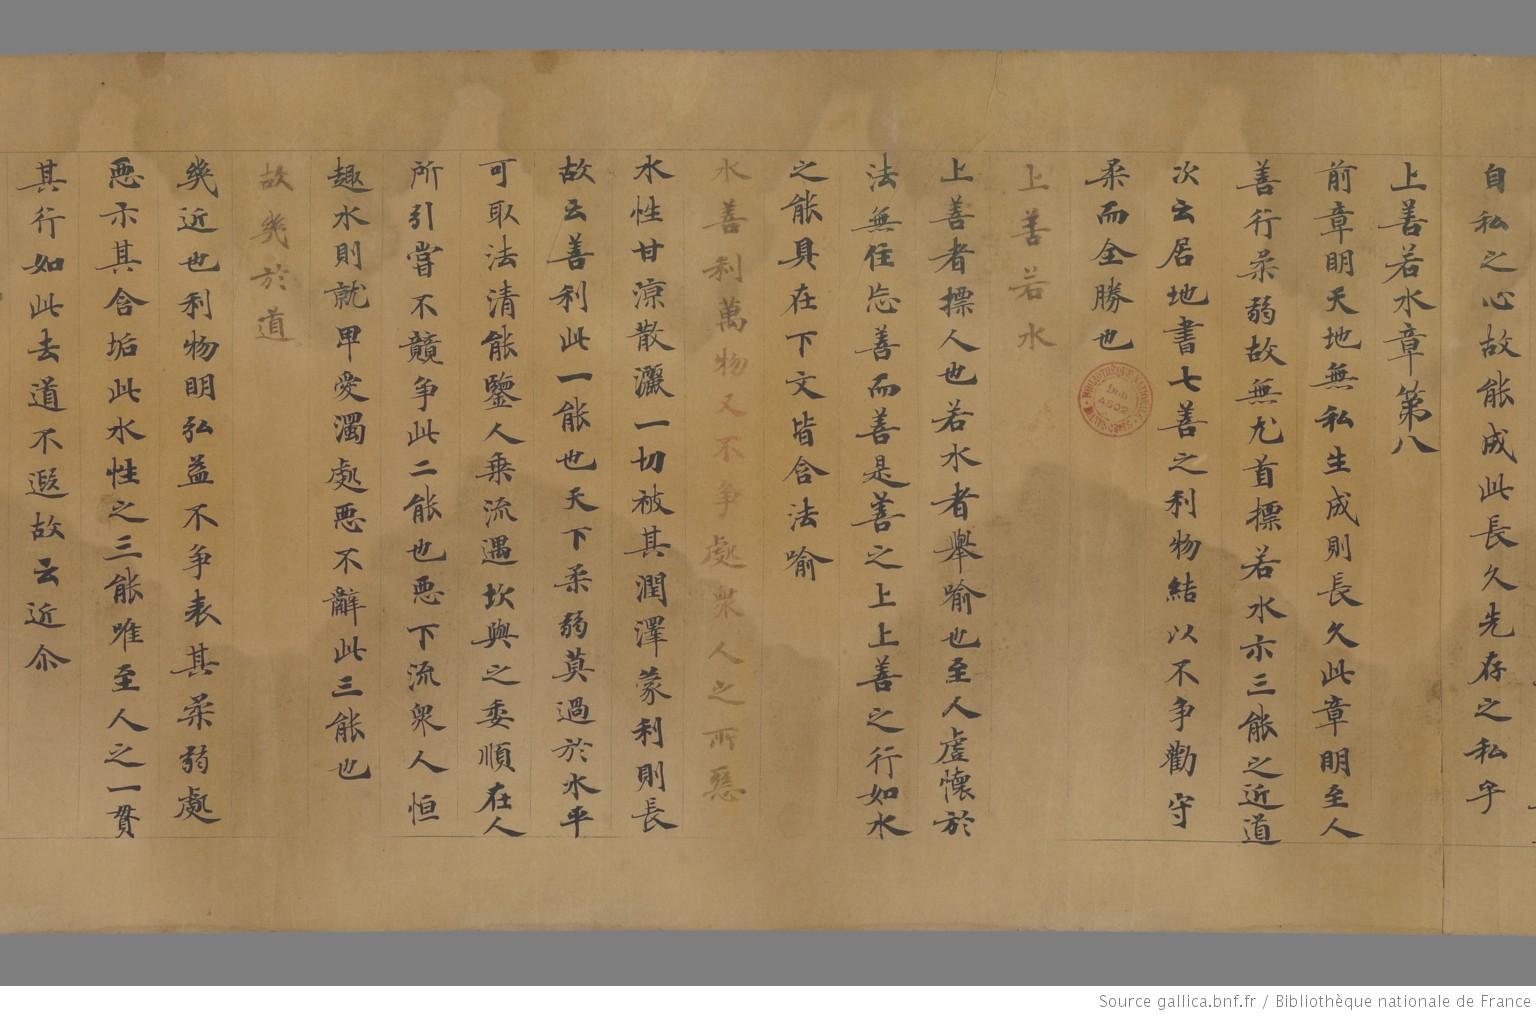 自私之心故能成此長久先存之私乎
上善若水章第八
前章明天地無私生成則長久此章明至人
善行柔弱故無尤首標若水示三能之近道
次云居地書七善之利物結以不争勸守
柔而全勝也
上善若水
上善者標人也若水者舉喻也至人虛懷於
法無住忘善而善是善之上上善之行如水
之能具在下文皆含法喻
水善利萬物又不争處衆人之所惡
水性甘涼散灑一切被其潤澤蒙利則長
故云善利此一能也天下柔弱莫過於水平
可取法清能鑒人乗流遇坎與之委順在人
所引嘗不競争此二能也惡下流衆人恒
趣水則就卑受濁處惡不辭此三能也
故幾於道
幾近也利物明弘益不争表其柔弱處
惡示其含垢此水性之三能唯至人之一貫
其行如此去道不遐故云近尒
BIBLIOTHÈQUE NATIONALE MANUSCRITS
Don
4502
Source gallica.bnf.fr / Bibliothèque nationale de France